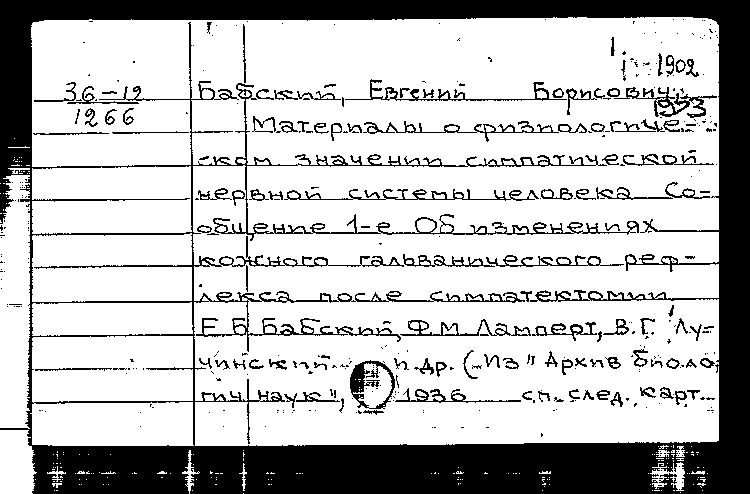 1902
36-12 Бабский, Евгений Борисович,
1266 1973
Материалы о физиологиче-
ском значении симпатической
нервной системы человека Со-
общение 1-е Об изменениях
кожного гальванического реф-
лекса после симпатектомии
Е Б Бабский, Ф.М. Ламперт, В.Г. Лу-
чинский и др. ("Из" Архив биоло
гич наук", 1936 сп. след. карт.